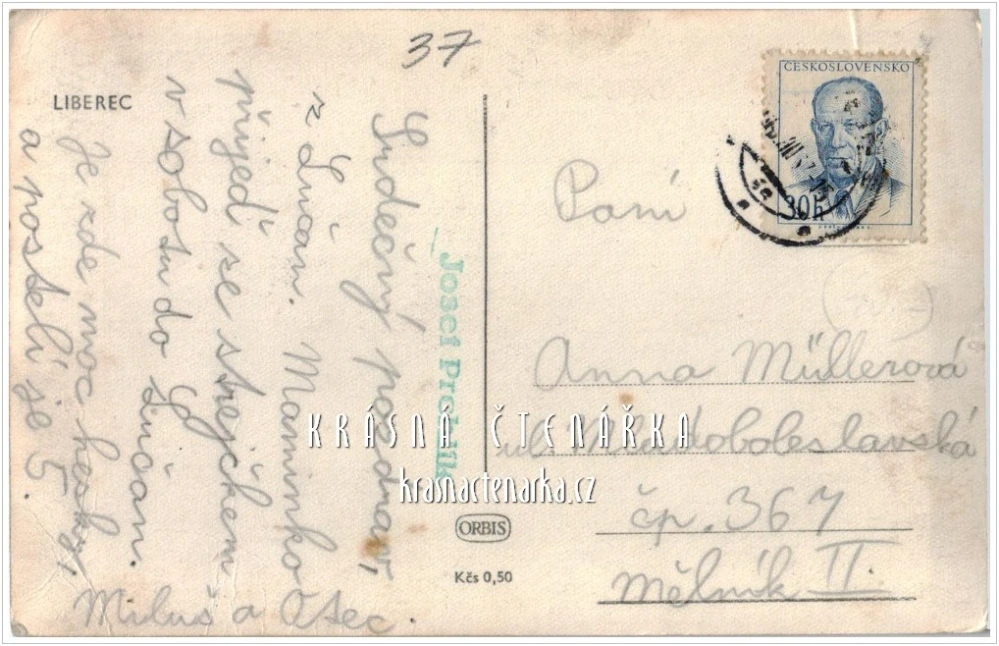 37
LIBEREC
ČESKOSLOVENSKO
30h
Srdečný pozdrav,
z Lučan. Maminko
přijeď se strejčkem
v sobotu do Lučan.
Je zde moc hezky,
a postelí je 5.
Miluš a Otec.
Josef
Paní
Anna Müllerová
ul. Mladoboleslavská
čp. 367
Mělník II
KRÁSNÁ ČTENÁŘKA
krasnactenarka.cz
ORBIS
Kčs 0,50